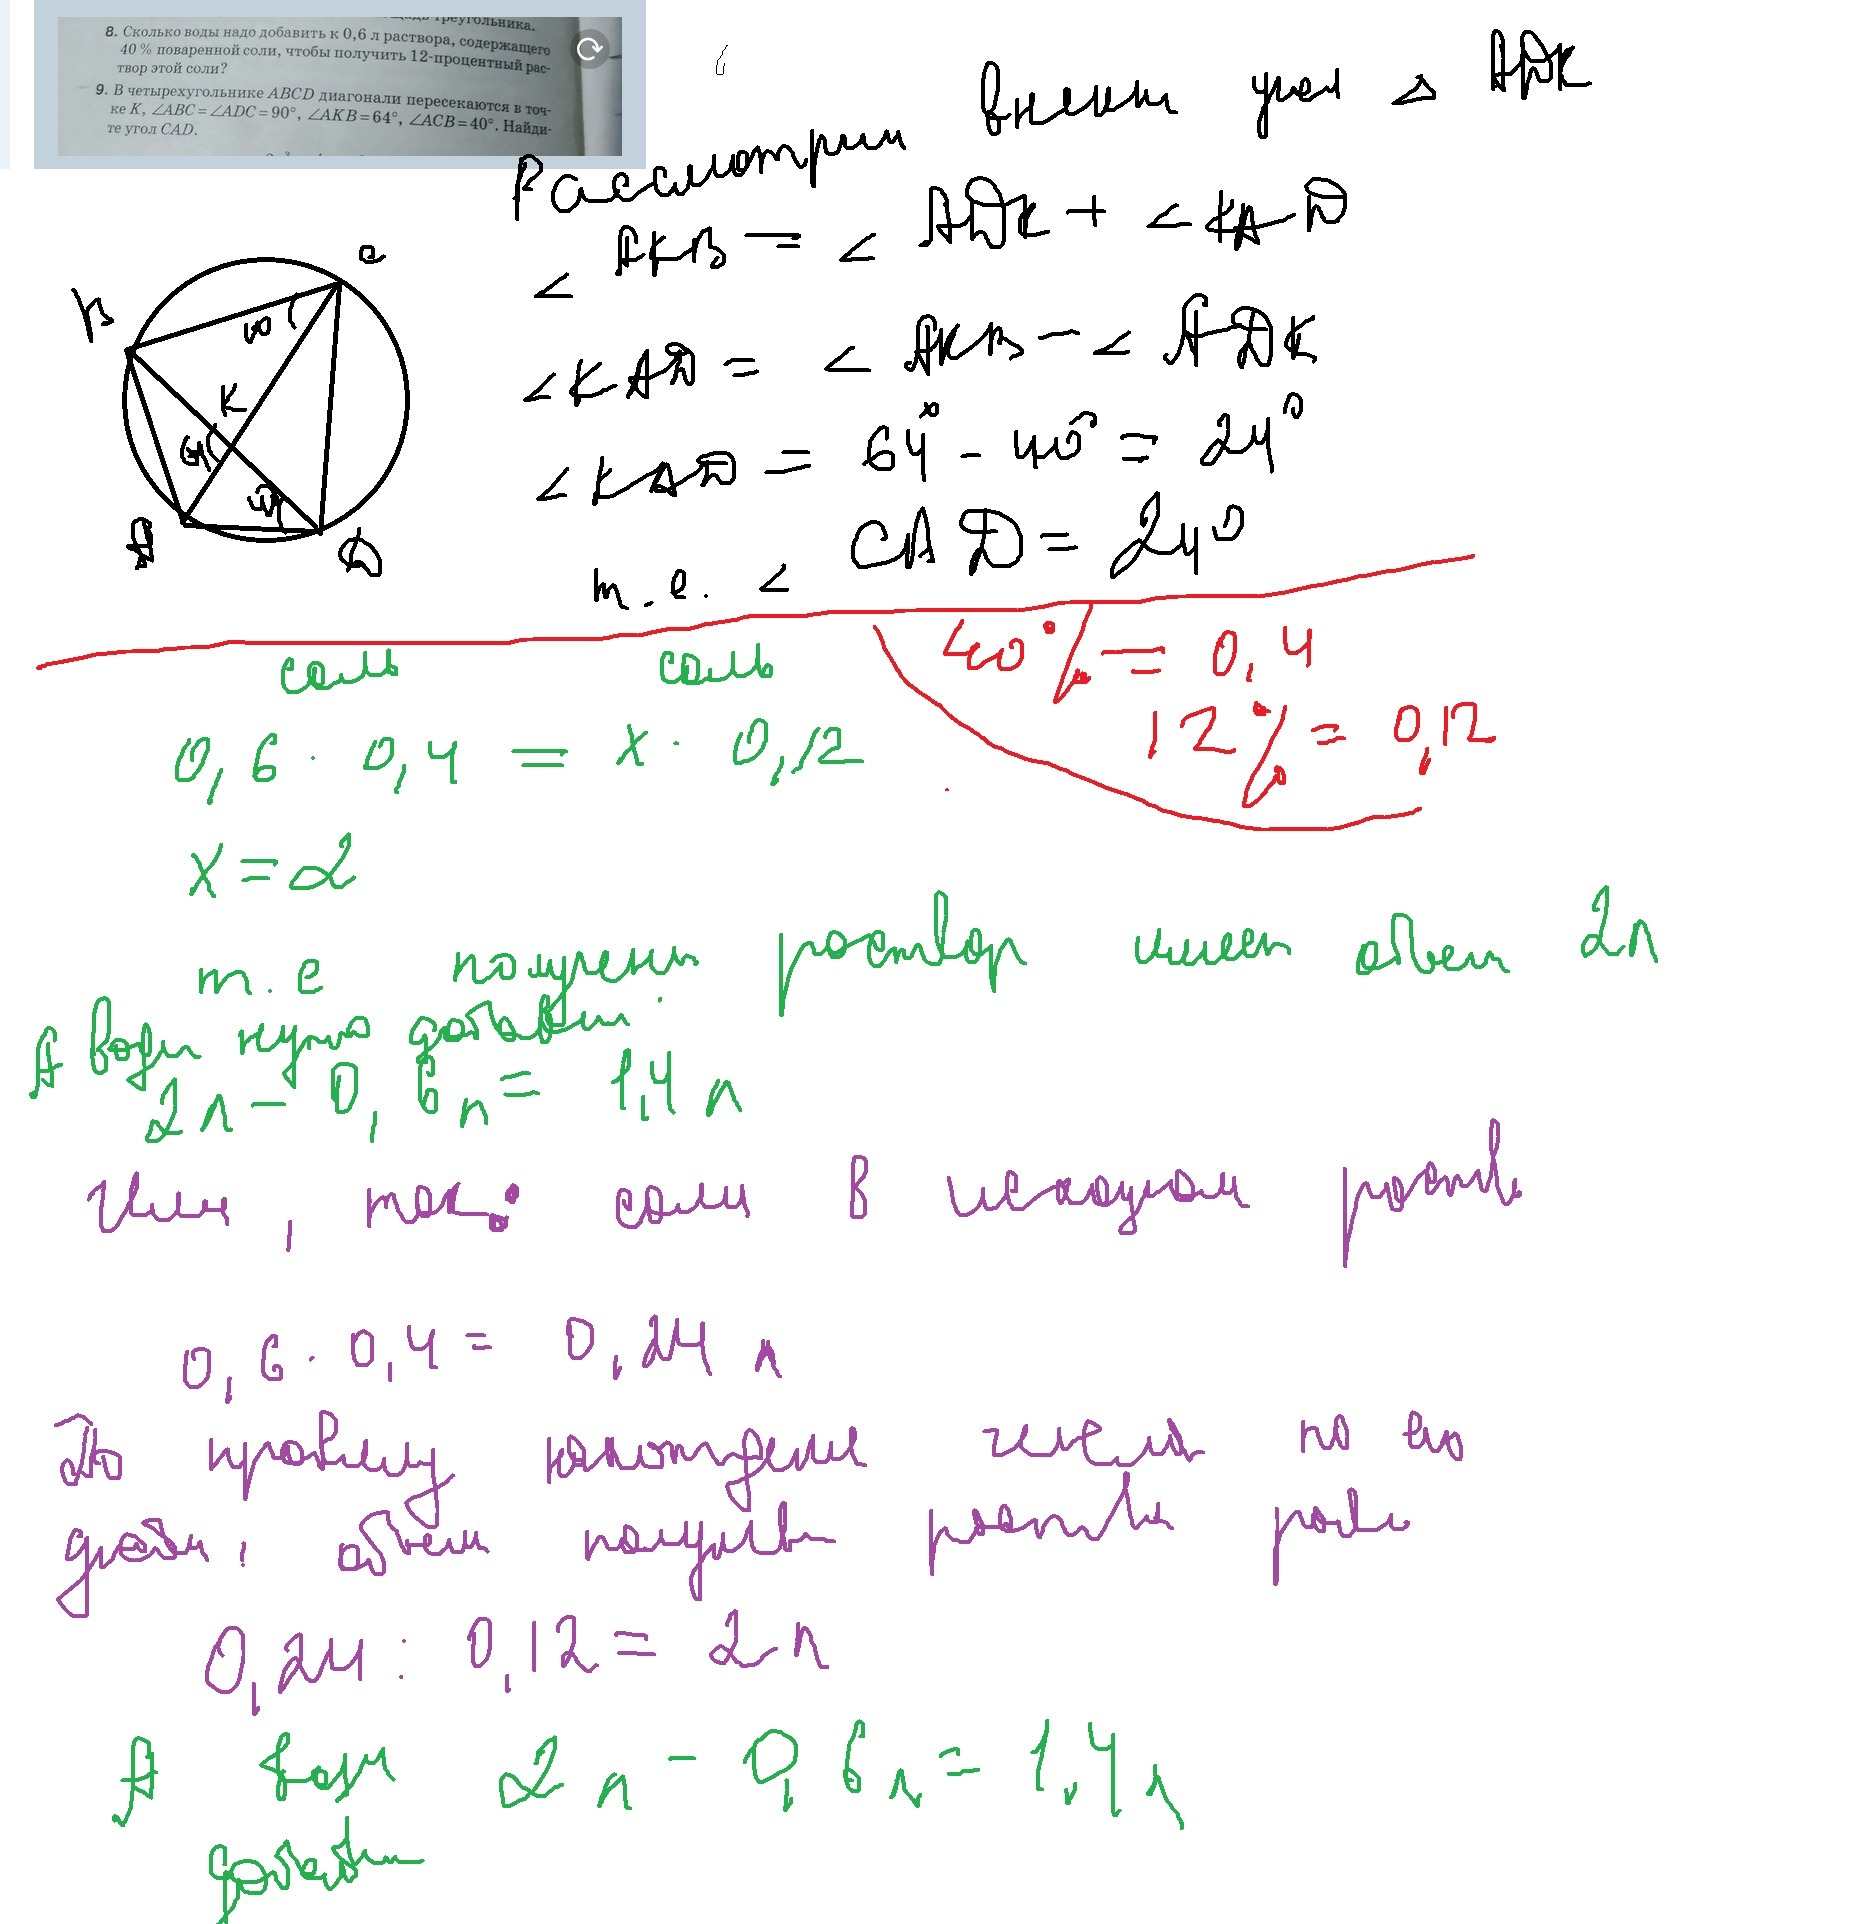 щадь треугольника.
8. Сколько воды надо добавить к 0,6 л раствора, содержащего
40 % поваренной соли, чтобы получить 12-процентный рас-
твор этой соли?
9. В четырехугольнике ABCD диагонали пересекаются в точ-
ке K, ∠ABC = ∠ADC = 90°, ∠AKB = 64°, ∠ACB = 40°. Найди-
те угол CAD.
Рассмотрим внешн угол △ ADK
∠ AKB = ∠ ADK + ∠ KAD
∠ KAD = ∠ AKB − ∠ ADK
∠ KAD = 64° − 40° = 24°
т.е. ∠ CAD = 24°
B
C
40
K
64
40
A
D
40% = 0,4
12% = 0,12
соль соль
0,6 · 0,4 = x · 0,12
x = 2
т.е получен раствор имеет объем 2л
А воды нужно добавит
2л − 0,6л = 1,4 л
соли в исходном раств
0,6 · 0,4 = 0,24 л
По числа по его
дроби: объем раств
0,24 : 0,12 = 2л
А воды 2л − 0,6л = 1,4л
добавит